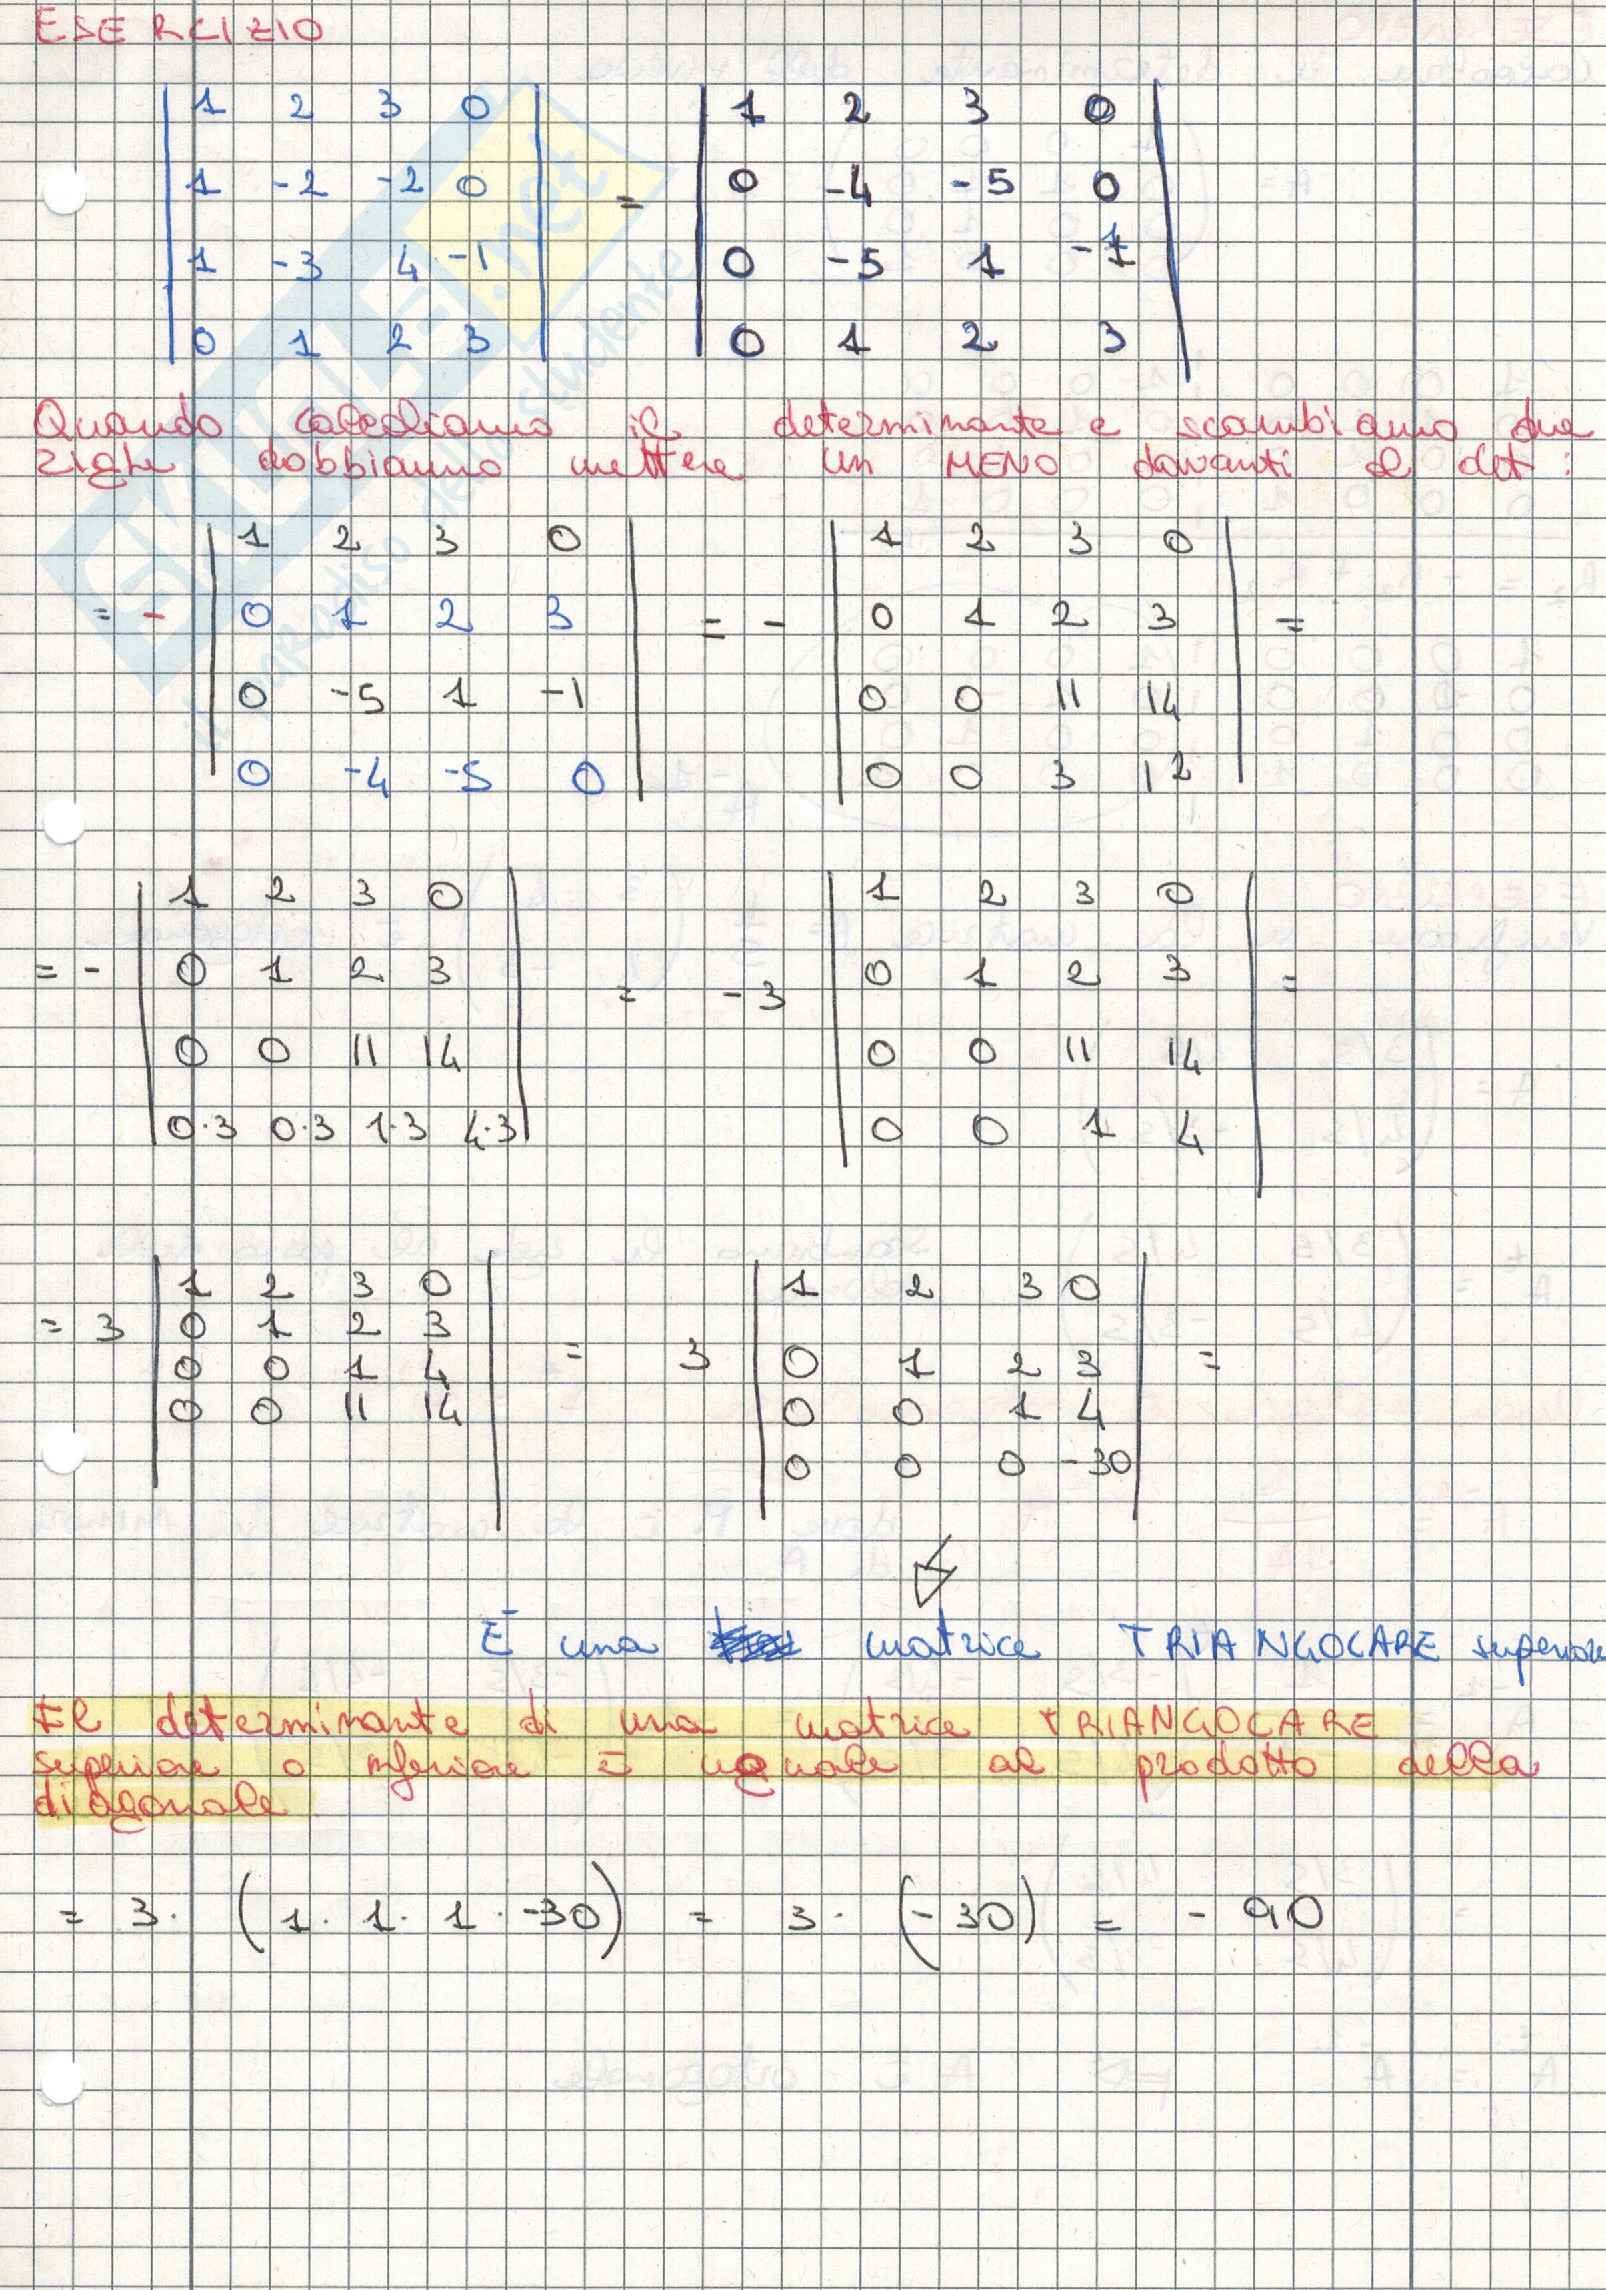 ESERCIZIO
| 1 2 3 0 | | 1 2 3 0 |
| 1 -2 -2 0 | = | 0 -4 -5 0 |
| 1 -3 4 -1 | | 0 -5 1 -1 |
| 0 1 2 3 | | 0 1 2 3 |
Quando calcoliamo il determinante e scambiamo due
righe dobbiamo mettere un MENO davanti al det:
| 1 2 3 0 | | 1 2 3 0 |
= - | 0 1 2 3 | = - | 0 1 2 3 | =
| 0 -5 1 -1 | | 0 0 11 14 |
| 0 -4 -5 0 | | 0 0 3 12 |
| 1 2 3 0 | | 1 2 3 0 |
= - | 0 1 2 3 | = -3 | 0 1 2 3 | =
| 0 0 11 14 | | 0 0 11 14 |
| 0·3 0·3 1·3 4·3 | | 0 0 1 4 |
| 1 2 3 0 | | 1 2 3 0 |
= 3 | 0 1 2 3 | = 3 | 0 1 2 3 | =
| 0 0 1 4 | | 0 0 1 4 |
| 0 0 11 14 | | 0 0 0 -30 |
È una matrice TRIANGOLARE superiore
Il determinante di una matrice TRIANGOLARE
superiore o inferiore è uguale al prodotto della
diagonale
= 3· (1·1·1·-30) = 3·(-30) = -90